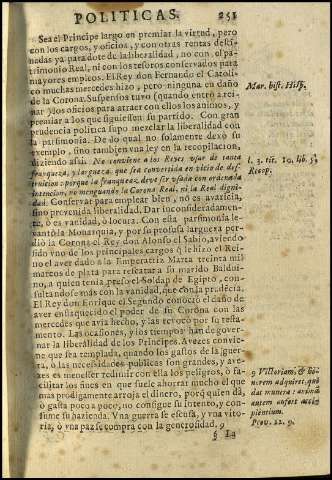 POLITICAS. 251
Sea el Principe largo en premiar la virtud, pero
con los cargos, y oficios, y con otras rentas desti-
nadas ya para dote de la liberalidad, no con el pa-
trimonio Real, ni con los tesoros conservados para
mayores empleos. El Rey don Fernando el Catoli-
co muchas mercedes hizo, pero ninguna en daño
de la Corona. Suspensos tuvo (quando entrò a rei-
nar) los oficios para atraer con ellos los animos, y
premiar a los que siguiessen su partido. Con gran
prudencia politica supo mezclar la liberalidad con
la parsimonia. De lo qual no solamente dexò su
exemplo, sino tambien vna ley en la recopilacion,
diziendo assi: No conviene a los Reyes vsar de tanta
franqueza, y largueza, que sea convertida en vicio de des-
truicion: porque la franqueza debe ser vsada con ordenada
intencion, no menguando la Corona Real, ni la Real digni-
dad. Conservar para emplear bien, no es avaricia,
sino prevenida liberalidad. Dar inconsideradamen-
te, ò es vanidad, ò locura. Con esta parsimonia le-
vantò la Monarquia, y por su profusa largueza per-
diò la Corona el Rey don Alonso el Sabio, aviendo
sido vno de los principales cargos q̃ le hizo el Rei-
no el aver dado a la Emperatriz Marta treinta mil
marcos de plata para rescatar a su marido Baldui-
no, a quien tenia preso el Soldan de Egipto, con-
sultandose mas con la vanidad, que con la prudẽcia.
El Rey don Enrique el Segundo conociò el daño de
aver enflaquecido el poder de su Corona con las
mercedes que avia hecho, y las revocò por su testa-
mento. Las ocasiones, y los tiempos han de gover-
nar la liberalidad de los Principes. A vezes convie-
ne que sea templada, quando los gastos de la guer-
ra, ò las necesidades publicas son grandes, y a ve-
zes es menester redimir con ella los peligros, ò fa-
cilitar los fines en que suele ahorrar mucho el que
mas prodigamente arroja el dinero, porque quien dà,
ò gasta poco a poco, no consigue su intento, y con-
sume su hazienda. Vna guerra se escusa, y vna vito-
ria, ò vna paz se compra con la generosidad. 9
§ La
Mar. hist. Hisp.
l. 3. tit. 10. lib. 5.
Recop.
9 Victoriam, & ho-
norem adquiret, qui
dat munera: animã
autem aufert accipientium.
Prov. 22. 9.